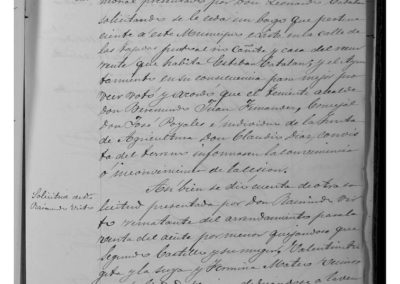 morial presentado por Don Leonardo Catalan
solicitandose le ceda un bargo que pertene
ciente a este Municipio existe en la calle de
las tapias frontal rio Cañete y casa del recur
rente que habita Esteban Catalan; y el Ayun
tamiento en su consecuencia para mejor pro
veer votó y acordó que el teniente alcalde
Don Bermundo Juan Fernandez, Concejal
Don José Poyales e individuo de la Junta
de Agricultura Don Claudio Diaz, con vis
ta del terreno informasen la conveniencia
o inconveniente de la cesion.
Solicitud de D.
Raimundo Victo
Asi bien se dio cuenta de otra so
licitud presentada por Don Raimundo Vic
to rematante del arrendamiento para la
venta del aceite por menor quejandose que
Segundo Castillo y su muger, Valentin
y la suya y Fermina Mateo vecinos